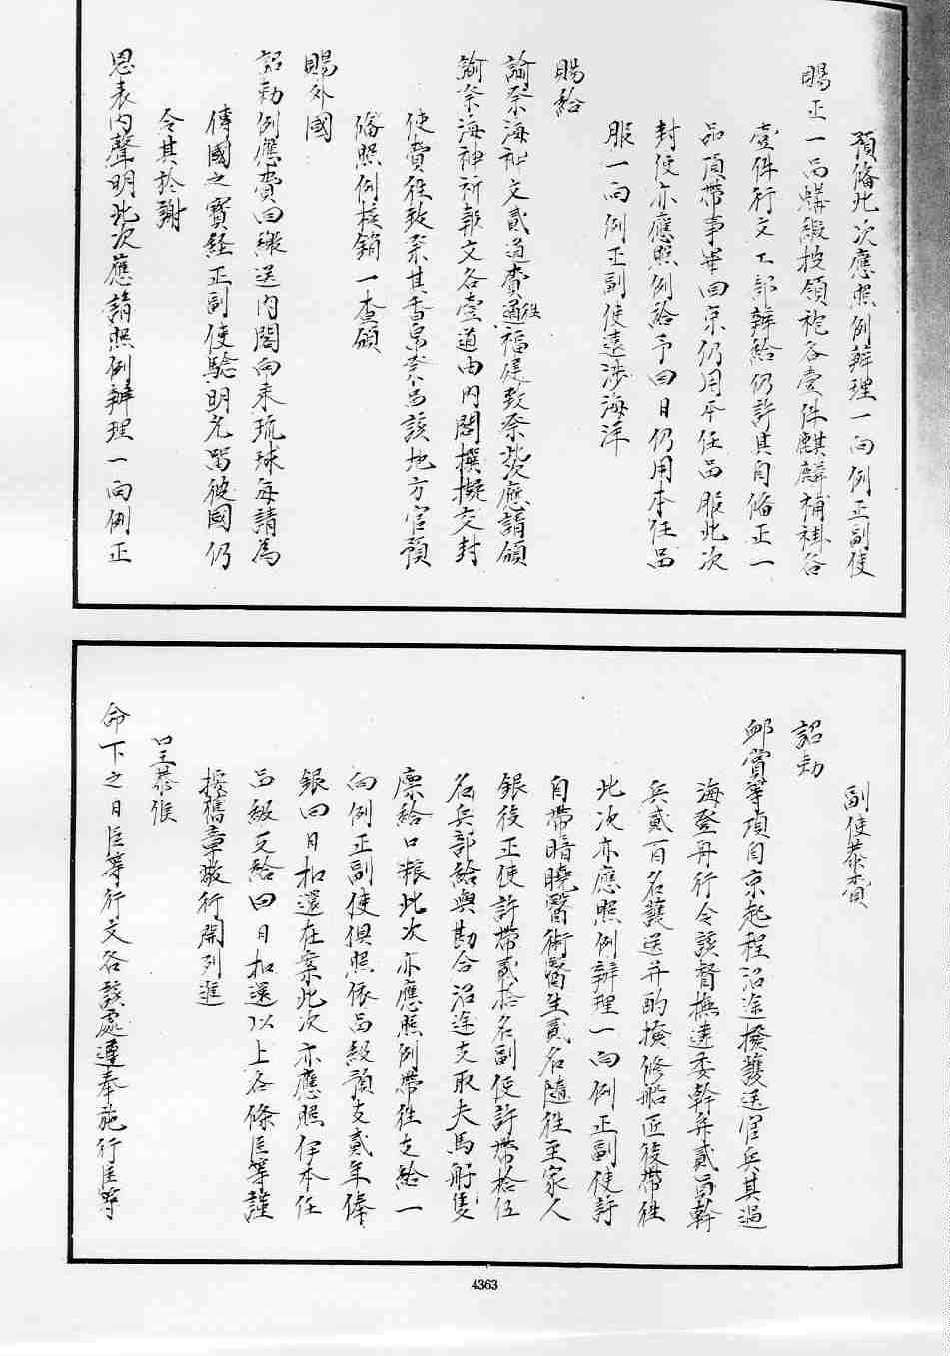 預俻此次應照例辦理一向例正副使
賜正一品蟒緞披領袍各壹件麒麟補褂各
壹件行文工部辦給仍許其自俻正一
品頂帶事畢回京仍用本任品服此次
封使亦應照例給予回日仍用本任品
服一向例正副使遠涉海洋
賜給
諭祭海神文貳道賫往通福建致祭此次應請頒
諭祭海神祈報文各壹道由內閣撰擬交封
使賫往致祭其香帛祭品該地方官預
俻照例核銷一查頒
賜外國
詔勅例應賫回繳送內閣向來琉球每請為
傳國之寶經正副使驗明允留彼國仍
令其於謝
恩表內聲明此次應請照例辦理一向例正
副使恭賫
詔勅
邺賞等項自京起程沿途撥護送官兵其過
海登舟行令該督撫遴委幹弁貳員幹
兵貳百名護送并酌撥修船匠役帶往
此次亦應照例辦理一向例正副使許
自帶暗曉醫術醫生貳名隨往至家人
銀後正使許帶貳拾名副使許帶拾伍
名兵部給與勘合沿途支取夫馬舡隻
廩給口粮此次亦應照例帶往支給一
向例正副使俱照依品級預支貳年俸
銀回日扣還在案此次亦應照伊本任
品級支給回日扣還以上各條臣等謹
據舊章敬行開列進
呈恭候
命下之日臣等行文各該處遵奉施行臣等
4363